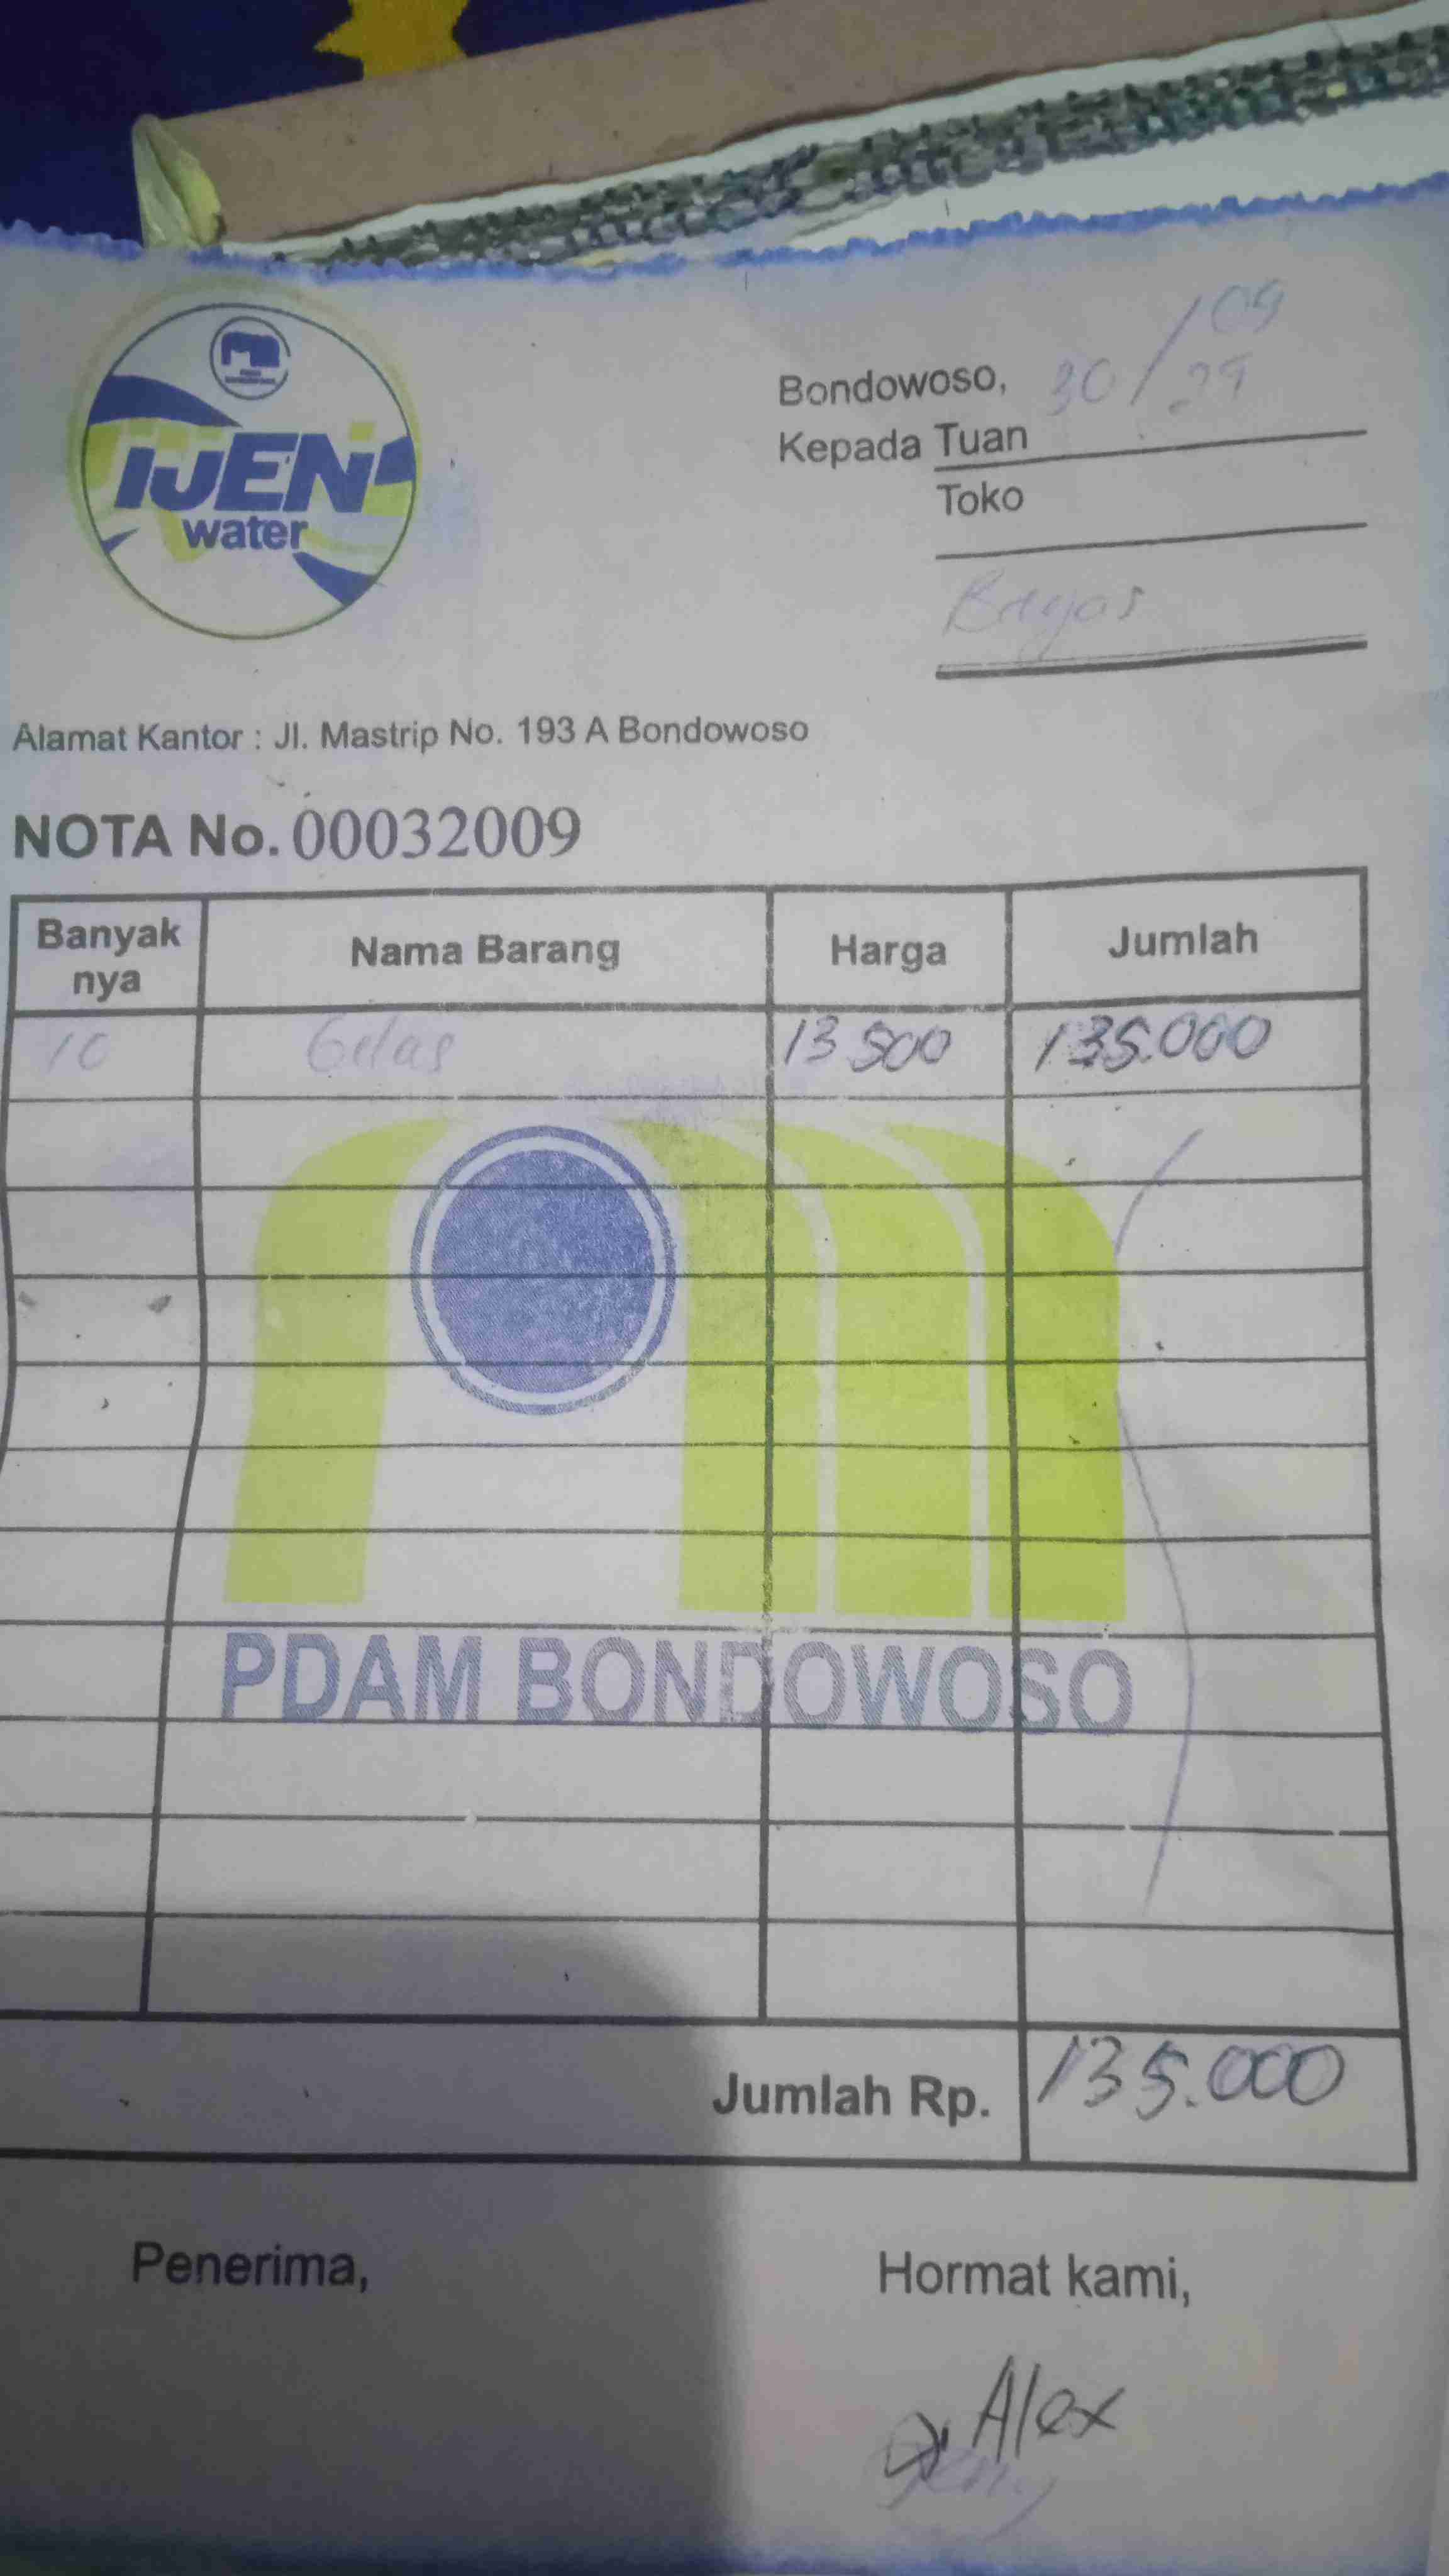 IJEN
water
Bondowoso, 30/09
Kepada Tuan
Toko
Bagas
Alamat Kantor : Jl. Mastrip No. 193 A Bondowoso
NOTA No. 00032009
Banyak nya Nama Barang Harga Jumlah
10 Gelas 13 500 135.000
PDAM BONDOWOSO
Jumlah Rp. 135.000
Penerima, Hormat kami,
Alex